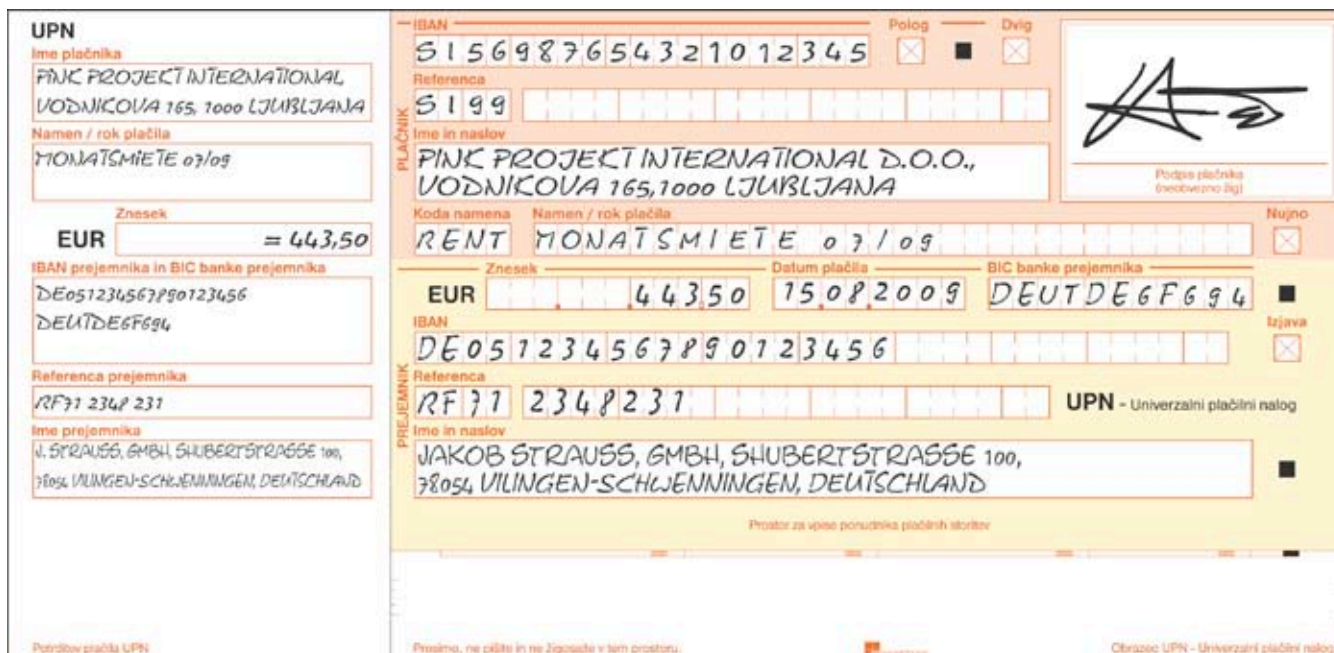 UPN
Ime plačnika
PINK PROJEKT INTERNATIONAL,
VODNIKOVA 165, 1000 LJUBLJANA
Namen / rok plačila
MONATSMIETE 07/09
Znesek
EUR = 443,50
IBAN prejemnika in BIC banke prejemnika
DE051234567890123456
DEUTDE6F694
Referenca prejemnika
RF71 2348 231
Ime prejemnika
J. STRAUSS, GMBH, SHUBERTSTRASSE 100,
78054 VILINGEN-SCHWENNINGEN, DEUTSCHLAND
Potrditev plačila UPN
PLAČNIK
IBAN Polog Dvig
SI56987654321012345
Referenca
SI99
Ime in naslov
PINK PROJEKT INTERNATIONAL D.O.O.,
VODNIKOVA 165, 1000 LJUBLJANA
Podpis plačnika
(neobvezno žig)
Koda namena Namen / rok plačila Nujno
RENT MONATSMIETE 07/09
Znesek Datum plačila BIC banke prejemnika
EUR 443,50 15.08.2009 DEUTDE6F694
PREJEMNIK
IBAN Izjava
DE051234567890123456
Referenca
RF71 2348231
UPN - Univerzalni plačilni nalog
Ime in naslov
JAKOB STRAUSS, GMBH, SHUBERTSTRASSE 100,
78054 VILINGEN-SCHWENNINGEN, DEUTSCHLAND
Prostor za vpise ponudnika plačilnih storitev
Prosimo, ne pišite in ne žigosajte v tem prostoru.
Obrazec UPN - Univerzalni plačilni nalog